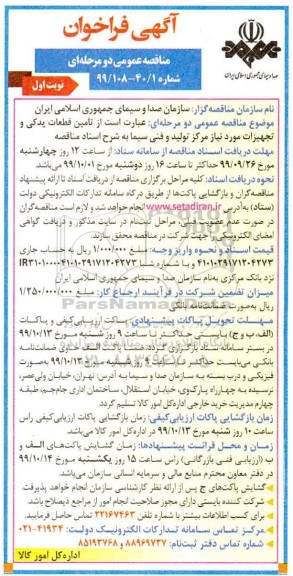 صدا و سیمای جمهوری اسلامی ایران
آگهی فراخوان
مناقصه عمومی دو مرحله‌ای
شماره ۹۹/۱۰۸-۴۰/۱
نوبت اول
نام سازمان مناقصه‌گزار: سازمان صدا و سیمای جمهوری اسلامی ایران
موضوع مناقصه عمومی دو مرحله‌ای: عبارت است از تامین قطعات یدکی و
تجهیزات مورد نیاز مرکز تولید و فنی سیما به شرح اسناد مناقصه
مهلت دریافت اسناد مناقصه از سامانه ستاد: از ساعت ۱۲ روز چهارشنبه
مورخ ۹۹/۰۹/۲۶ حداکثر تا ساعت ۱۶ روز دوشنبه مورخ ۹۹/۱۰/۰۱ می‌باشد.
نحوه دریافت اسناد: کلیه مراحل برگزاری مناقصه از دریافت اسناد تا ارائه پیشنهاد
مناقصه‌گران و بازگشایی پاکت‌ها از طریق درگاه سامانه تدارکات الکترونیکی دولت
(ستاد) به آدرس www.setadiran.ir انجام خواهد شد و لازم است مناقصه‌گران
در صورت عدم عضویت قبلی مراحل ثبت‌نام در سایت مذکور و دریافت گواهی
امضای الکترونیکی را جهت شرکت در مناقصه محقق سازند.
قیمت اسناد و نحوه واریز وجه: مبلغ ۱/۰۰۰/۰۰۰ ریال به حساب جاری
نزد بانک مرکزی به‌نام سازمان صدا و سیمای جمهوری اسلامی ایران
میزان تضمین شرکت در فرآیند ارجاع کار: مبلغ ۱/۲۵۰/۰۰۰/۰۰۰
ریال به‌صورت ضمانت‌نامه بانکی
مهلت تحویل پاکات پیشنهادی: پاکات ارزیابی کیفی و پاکات
(الف، ب و ج) بایستی حداکثر تا ساعت ۹ روز شنبه مورخ ۹۹/۱۰/۱۳
در بستر سامانه ستاد بارگذاری گردد. ضمناً پاکت الف حاوی ضمانت‌نامه
بانکی می‌بایست حداکثر تا ساعت ۹ روز شنبه مورخ ۹۹/۱۰/۱۳ به‌صورت
فیزیکی و درب بسته به سازمان صدا و سیما به آدرس: تهران، خیابان ولی‌عصر،
نرسیده به چهارراه پارک‌وی، خیابان استقلال، ساختمان اداری جام‌جم، طبقه
چهارم مدیریت خرید خارجی اداره‌کل امور کالا تسلیم گردد.
زمان بازگشایی پاکات ارزیابی‌کیفی: زمان بازگشایی پاکات ارزیابی‌کیفی راس
ساعت ۱۰ روز شنبه مورخ ۹۹/۱۰/۱۳ در اداره کل امور کالا می‌باشد.
زمان و محل قرائت پیشنهادها: زمان گشایش پاکت‌های الف و
ب (ارزیابی فنی بازرگانی) راس ساعت ۱۵ روز یکشنبه مورخ ۹۹/۱۰/۱۴
در دفتر معاون محترم منابع مالی و سرمایه انسانی سازمان می‌باشد.
گشایش پاکت‌های ج پس از ارائه نظر کارشناسی سازمان انجام خواهد پذیرفت.
شرکت کننده بایستی دارای مجوز صلاحیت انجام امور از مراجع ذیصلاح باشد.
برای کسب اطلاعات بیشتر با شماره تلفن ۲۲۱۶۷۴۶۳ تماس حاصل فرمایید.
مرکز تماس سامانه تدارکات الکترونیک دولت: ۴۱۹۳۴-۰۲۱
شماره تماس دفتر ثبت‌نام: ۸۸۹۶۹۷۳۷ و ۸۵۱۹۳۷۶۸
اداره‌کل امور کالا